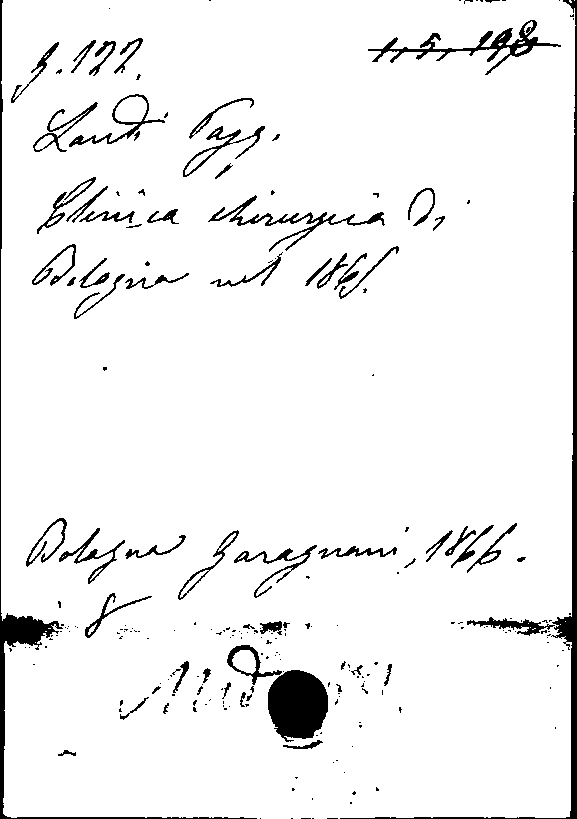 3.122.
1, 5, 198
Landi Pasq.
Clinica chirurgica di
Bologna nel 1865.
Bologna Garagnani, 1866.
8
Med